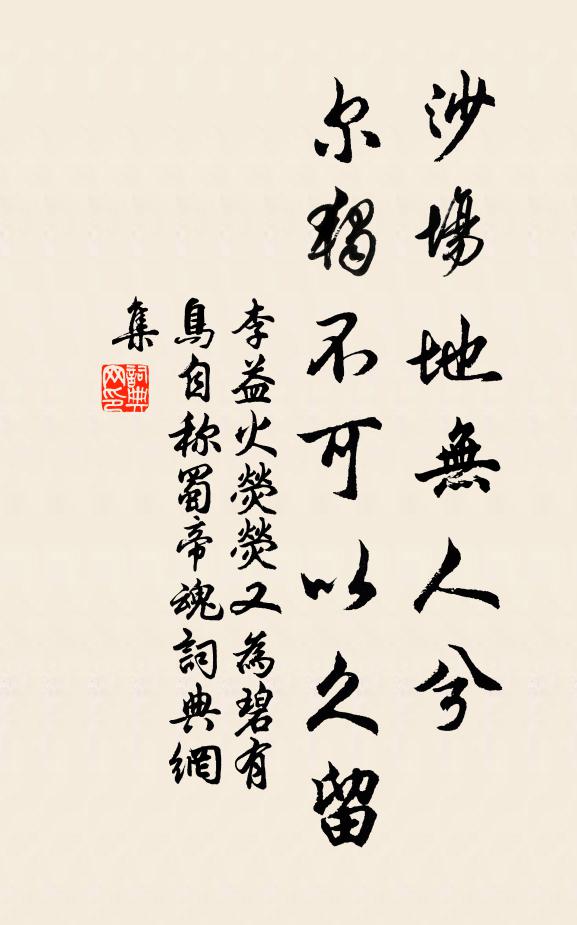 沙場地無人兮
尔獨不可以久留
李益火熒熒又為碧有
鳥自称蜀帝魂詞典網
集
詞典
网印